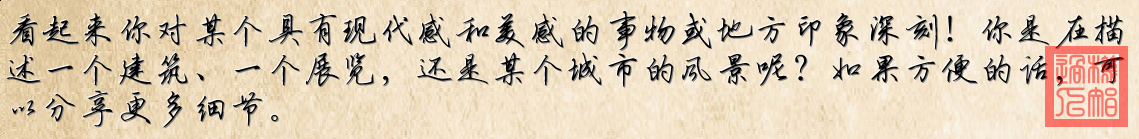 看起来你对某个具有现代感和美感的事物或地方印象深刻！你是在描
述一个建筑、一个展览，还是某个城市的风景呢？如果方便的话，可
以分享更多细节。